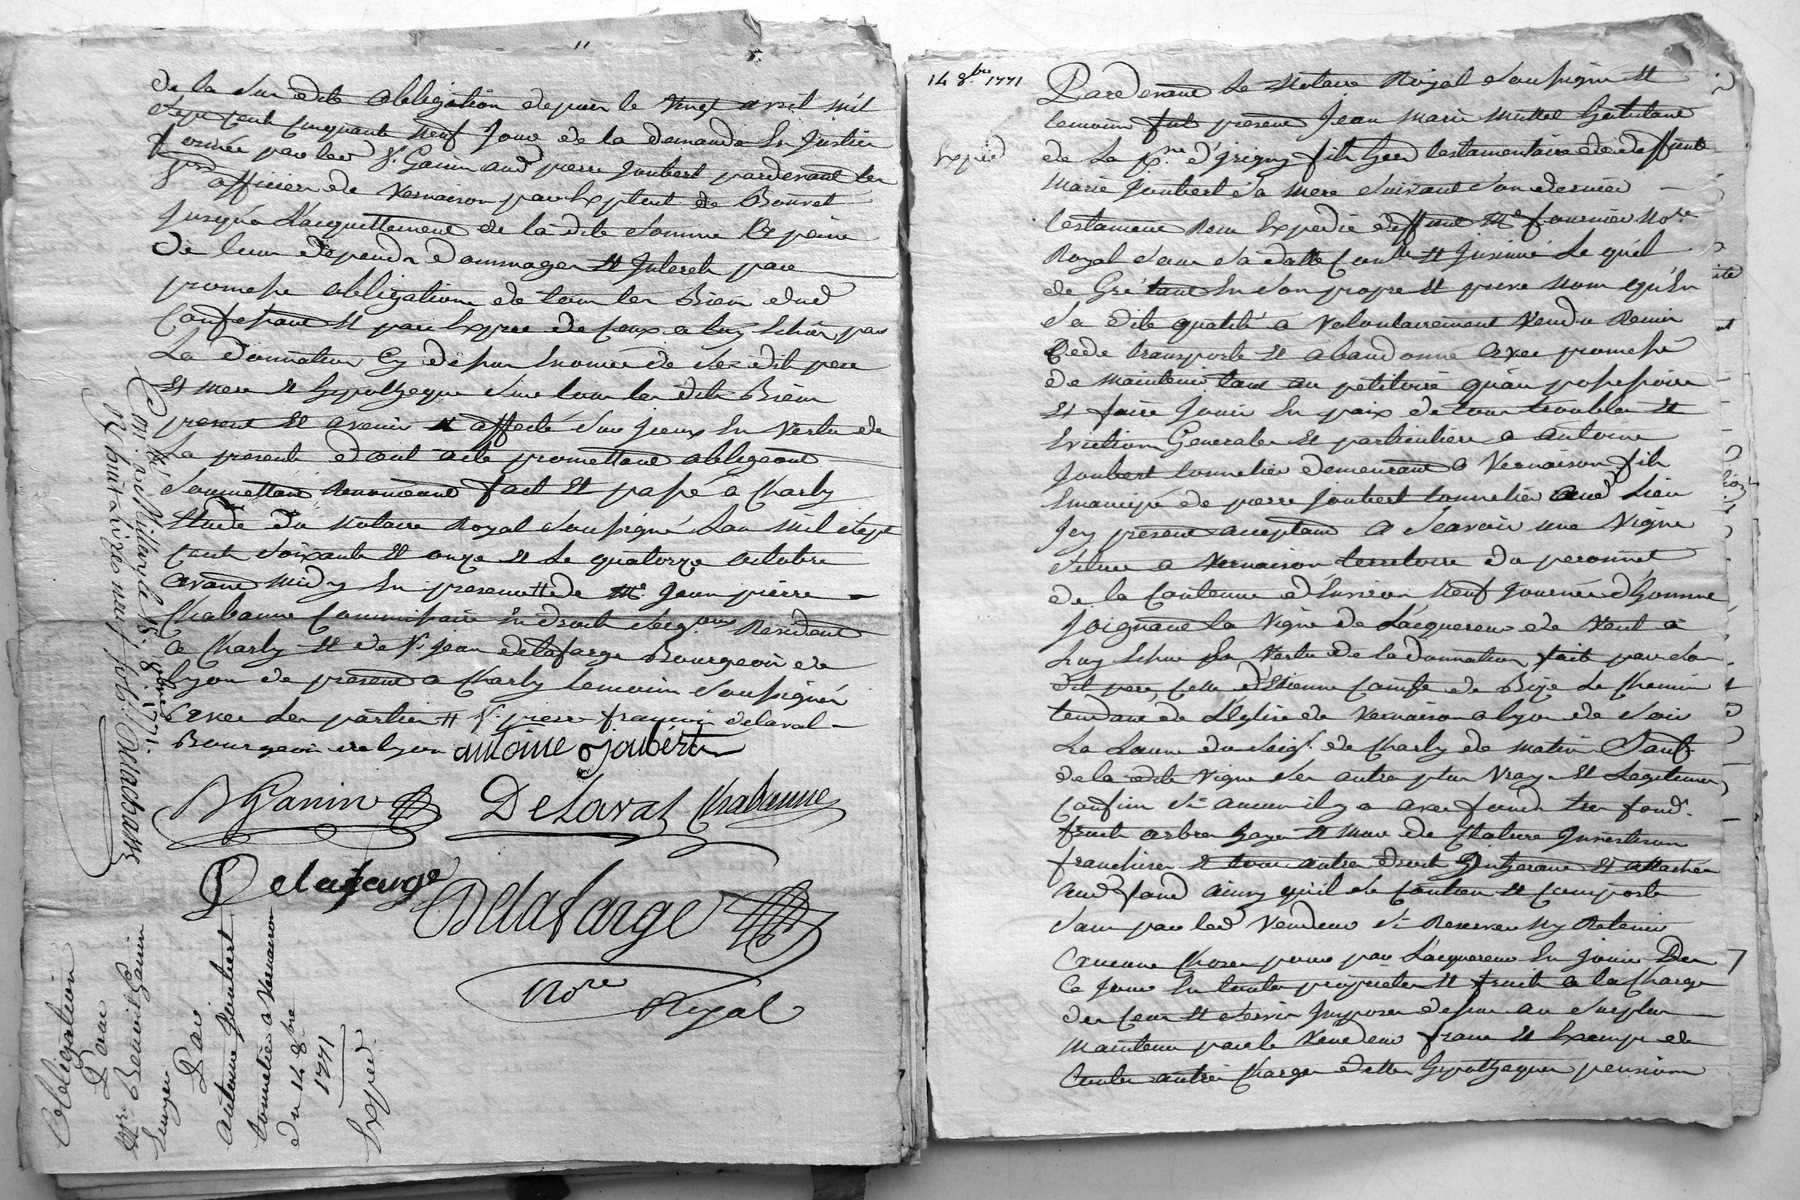 de la Sus dite obligation depuis le vingt avril mil
Sept Cent Cinquante neuf Jour de la demande En Justice
formée par led Sr Ganin aud pierre Joubert pardevant les
Srs officiers de Vernaison par Exploit de Bonnet
Jusqu'a L'acquittement de la dite Somme a peine
de tous depends dommages Et Interets par
promesse obligation de tous les Biens dud
Confessant Et par Exprès de Ceux a luy Echus par
La donnation Cy dessus Enoncée de Ses dit pere
Et mere Et hypotheque Sur tous les dits Biens
present Et avenir affecté Sur Iceux En Vertu de
La presente dont acte promettant obligeant
Soumettant Renonceant fait Et passé a Charly
Etude du Notaire Royal Soussigné L'an mil Sept
Cent Soixante Et onze Et le quatorze octobre
avant midy En presence de Me Jean pierre
Chabanne Commissaire En droits Seigaux Residant
a Charly Et de Sr Jean delafarge Bourgeois de
Lyon de present a Charly temoins Soussignés
avec les parties # Sr pierre françois delaval
Bourgeois de Lyon antoine joubert
B Ganin Delaval Chabanne
Delafarge
Delafarge
Nore
Royal
Obligation
Pour
Sr Benoist Ganin
Par
Antoine Joubert
tonnelier a Vernaison
du 14 8bre
1771
Exped.
14 8bre 1771
Expéd
Pardevant Le Notaire Royal Soussigné Et
temoins fut présent Jean Marie Muttet habitant
de La psse d'Irigny fils héred testamentaire de deffunte
Marie Joubert Sa Mere Suivant Son dernier
testament Reçu Expedié deffunt Me fournier Nore
Royal Sous Sa datte Contlé Et Insinué Lequel
de Gré tant En Son propre Et privé Nom qu'En
Sa dite qualité à Volontairement Vendu Remis
Cedé transporté Et abandonné avec promesse
de maintenir tant au petitoire qu'au possessoire
Et faire Jouir En paix de tous troubles Et
Eviction Generale Et particuliere a antoine
Joubert tonnelier demeurant a Vernaison fils
Emancipé de pierre Joubert tonnelier aud Lieu
Icy présent acceptant a Scavoir une Vigne
Située a Vernaison territoire du peronnet
de la Contenue d'Environ Neuf Journée d'homme
Joignant la Vigne de L'acquereur de Vent a
Luy Echue En Vertu de la donnation fait par Son
dit pere, Celle d'Etienne de Bize Le Chemin
tendant de L'Eglise de Vernaison a Lyon de Soir
La Saune du Seigr de Charly de matin Sauf
de la dite Vigne Ses autres plus Vrays Et Legitimes
Confins Si aucun il y a avec fonds tres fonds
fruits arbres hayes Et Murs de Cloture
franchises Et tous autres droits Et attachés
aud fond ainsy qu'il Se Contien Et Comporte
Sans par led Vendeur S'i Reserver Ny Retenir
aucune Choses pour par L'acquereur En Jouir Des
Ce Jour En toutes proprietés Et fruits a la Charge
des Cens Et Servis Imposés dessus au Surplus
Maintenu par le Vendeur franc Et Exempt de
toutes autres Charges dettes hypotheques pensions